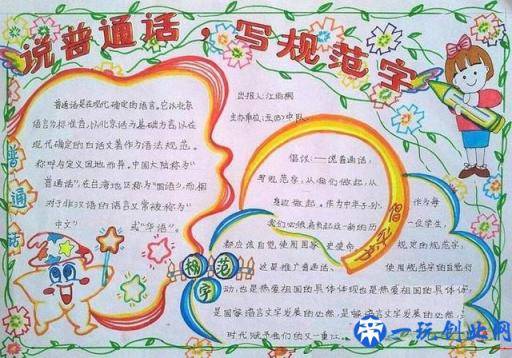 说普通话，写规范字
普通话是在现代确定的语言。它以北京
语言为标准音，以北京话为基础方言，以在
现代确定的白话文著作为语法规范。
称呼与定义因地而异。中国大陆称为“
普通话”，在台湾地区称为“国语”，而相
对于非汉语的语言又常被称为“
中文” 或“华语”。
普通话
出报人：江雨桐
主办单位：五(四)中队
倡议——说普通话，
写规范字，从我们做起，从
身边做起。作为中华子孙，作为每
一位学生，
都应该自觉使用国家 规定的规范字，
这是推广普通话、使用规范字的自觉行
动，也是热爱祖国的具体体现
是国家语言文字发展的必然，
时代赋予我们的又一重任。
倡议书
规范字
一玩创业网